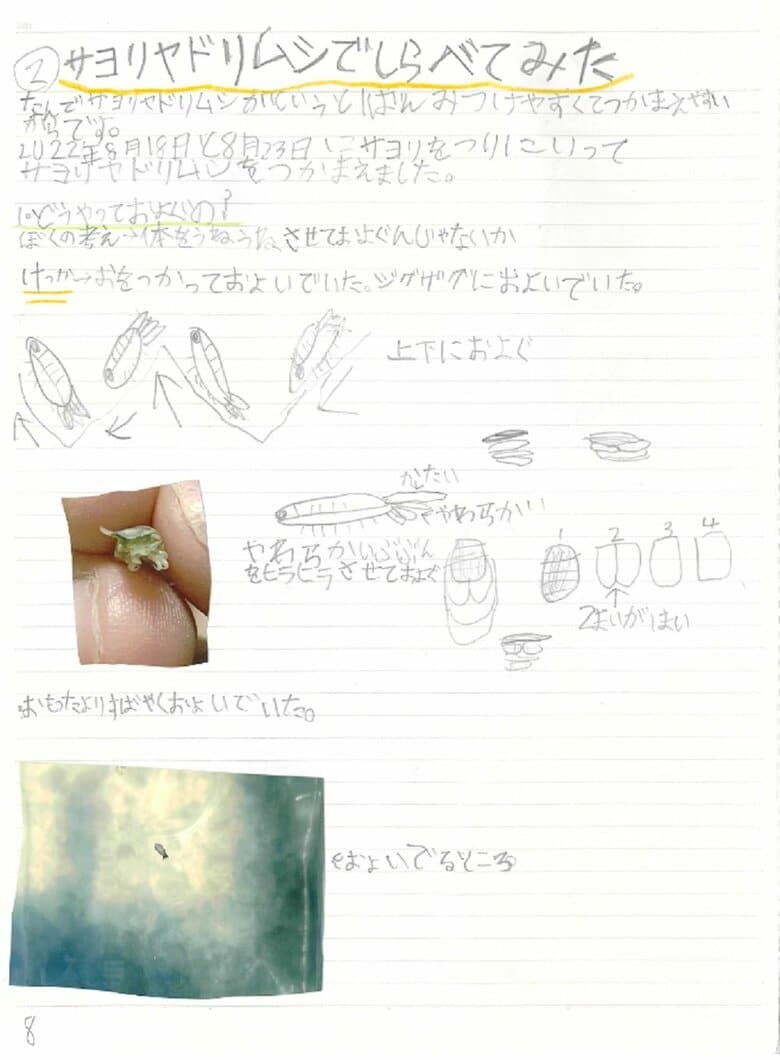 ② サヨリヤドリムシでしらべてみた
なんでサヨリヤドリムシかというといちばんみつけやすくてつかまえやすい
からです。
2022年8月18日と8月23日にサヨリをつりにいって
サヨリヤドリムシをつかまえました。
1.どうやっておよぐの?
ぼくの考え→体をうねうねさせておよぐんじゃないか
けっか→おをつかっておよいでいた。ジグザグにおよいでいた。
上下におよぐ
かたい
やわらかい
やわらかいぶぶん
をヒラヒラさせておよぐ
1 2 3 4
2まいがはい
おもたよりすばやくおよいでいた。
←およいでるところ
8